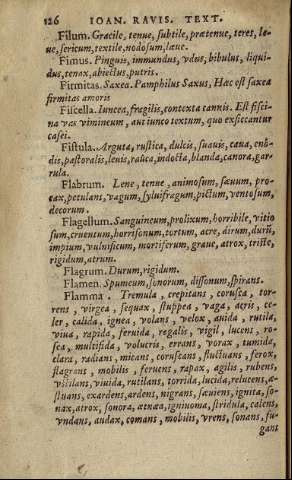 126 IOAN. RAVIS. TEXT.
Filum. Gracile, tenue, subtile, prætenue, teres, le-
ue, sericum, textile, nodosum, læue.
Fimus. Pinguis, immundus, vdus, bibulus, liqui-
dus, tenax, abiectus, putris.
Firmitas. Saxea. Pamphilus Saxus, Hæc est saxea
firmitas amoris
Fiscella. Iuncea, fragilis, contexta cannis. Est fisci-
na vas vimineum, aut iunco textum, quo exsiccantur
casei.
Fistula. Arguta, rustica, dulcis, suauis, caua,
dis, pastoralis, leuis, rauca, indocta, blanda, canora, gar-
rula.
Flabrum. Lene, tenue, animosum, sæuum, pro-
cax, petulans, vagum, syluifragum, pictum, ventosum,
decorum.
Flagellum. Sanguineum, prolixum, horribile, vitio
sum, cruentum, horrisonum, tortum, acre, dirum, durũ,
impium, vulnificum, mortiferum, graue, atrox, triste,
rigidum, atrum.
Flagrum. Durum, rigidum.
Flamen. Spumeum, sonorum, dissonum, spirans.
Flamma. Tremula, crepitans, corusca, tor-
rens, virgea, sequax, stuppea, vaga, acris, ce-
ler, calida, ignea, volans, velox, auida, rutila,
viua, rapida, feruida, regalis, vigil, lucens, ro-
sea, multifida, volucris, errans, vorax, tumida,
clara, radians, micans, coruscans, fluctuans, ferox,
flagrans, mobilis, feruens, rapax, agilis, rubens,
vigilans, viuida, rutilans, torrida, lucida, relucens, æ-
stuans, exardens, ardens, nigrans, sæuiens, ignita, so-
nax, atrox, sonora, ætnæa, ignivoma, stridula, calens,
vndans, audax, comans, mobilis, vrens, sonans, fu-
gans